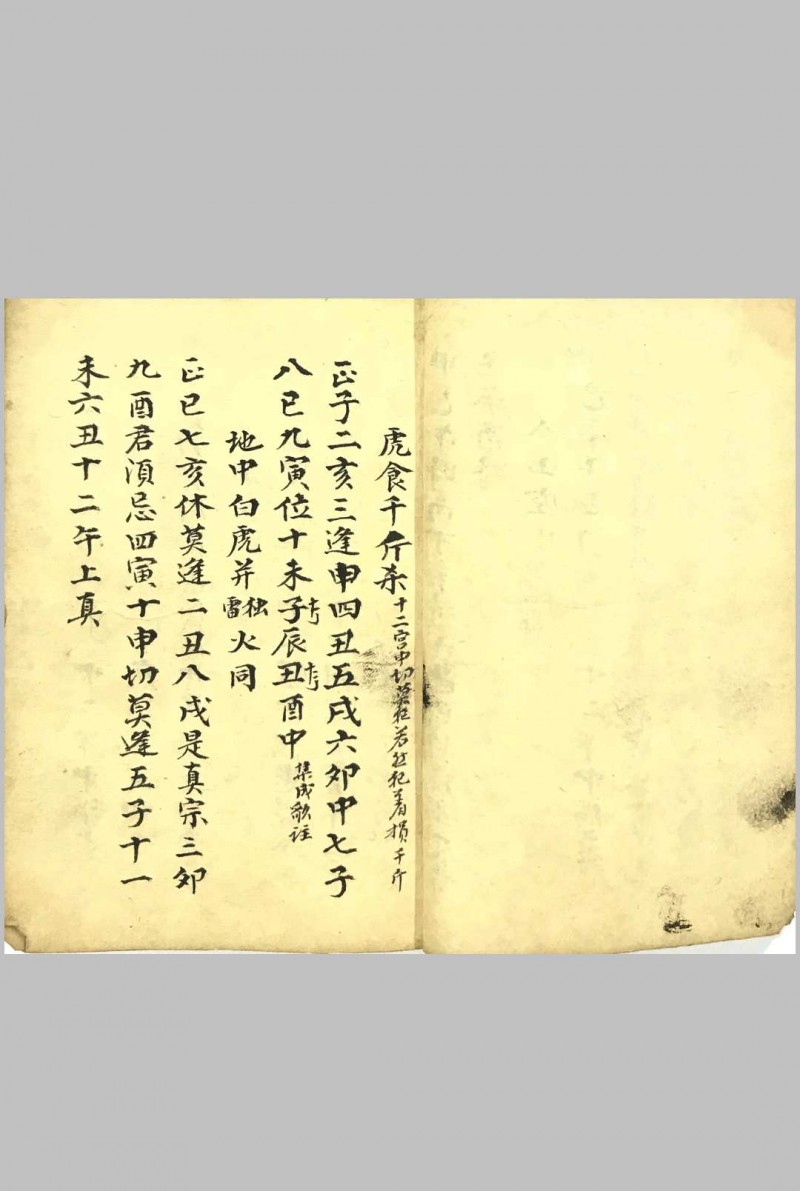 虎食千斤杀 十二宫中切莫犯若然犯着损千斤
正子二亥三逢申四丑五戌六卯中七子
八巳九寅位十未子辰丑酉中 集成歌註
地中白虎并独雷火同
正巳七亥休莫逢二丑八戌是真宗三卯
九酉君须忌四寅十申切莫逢五子十一
未六丑十二午上真